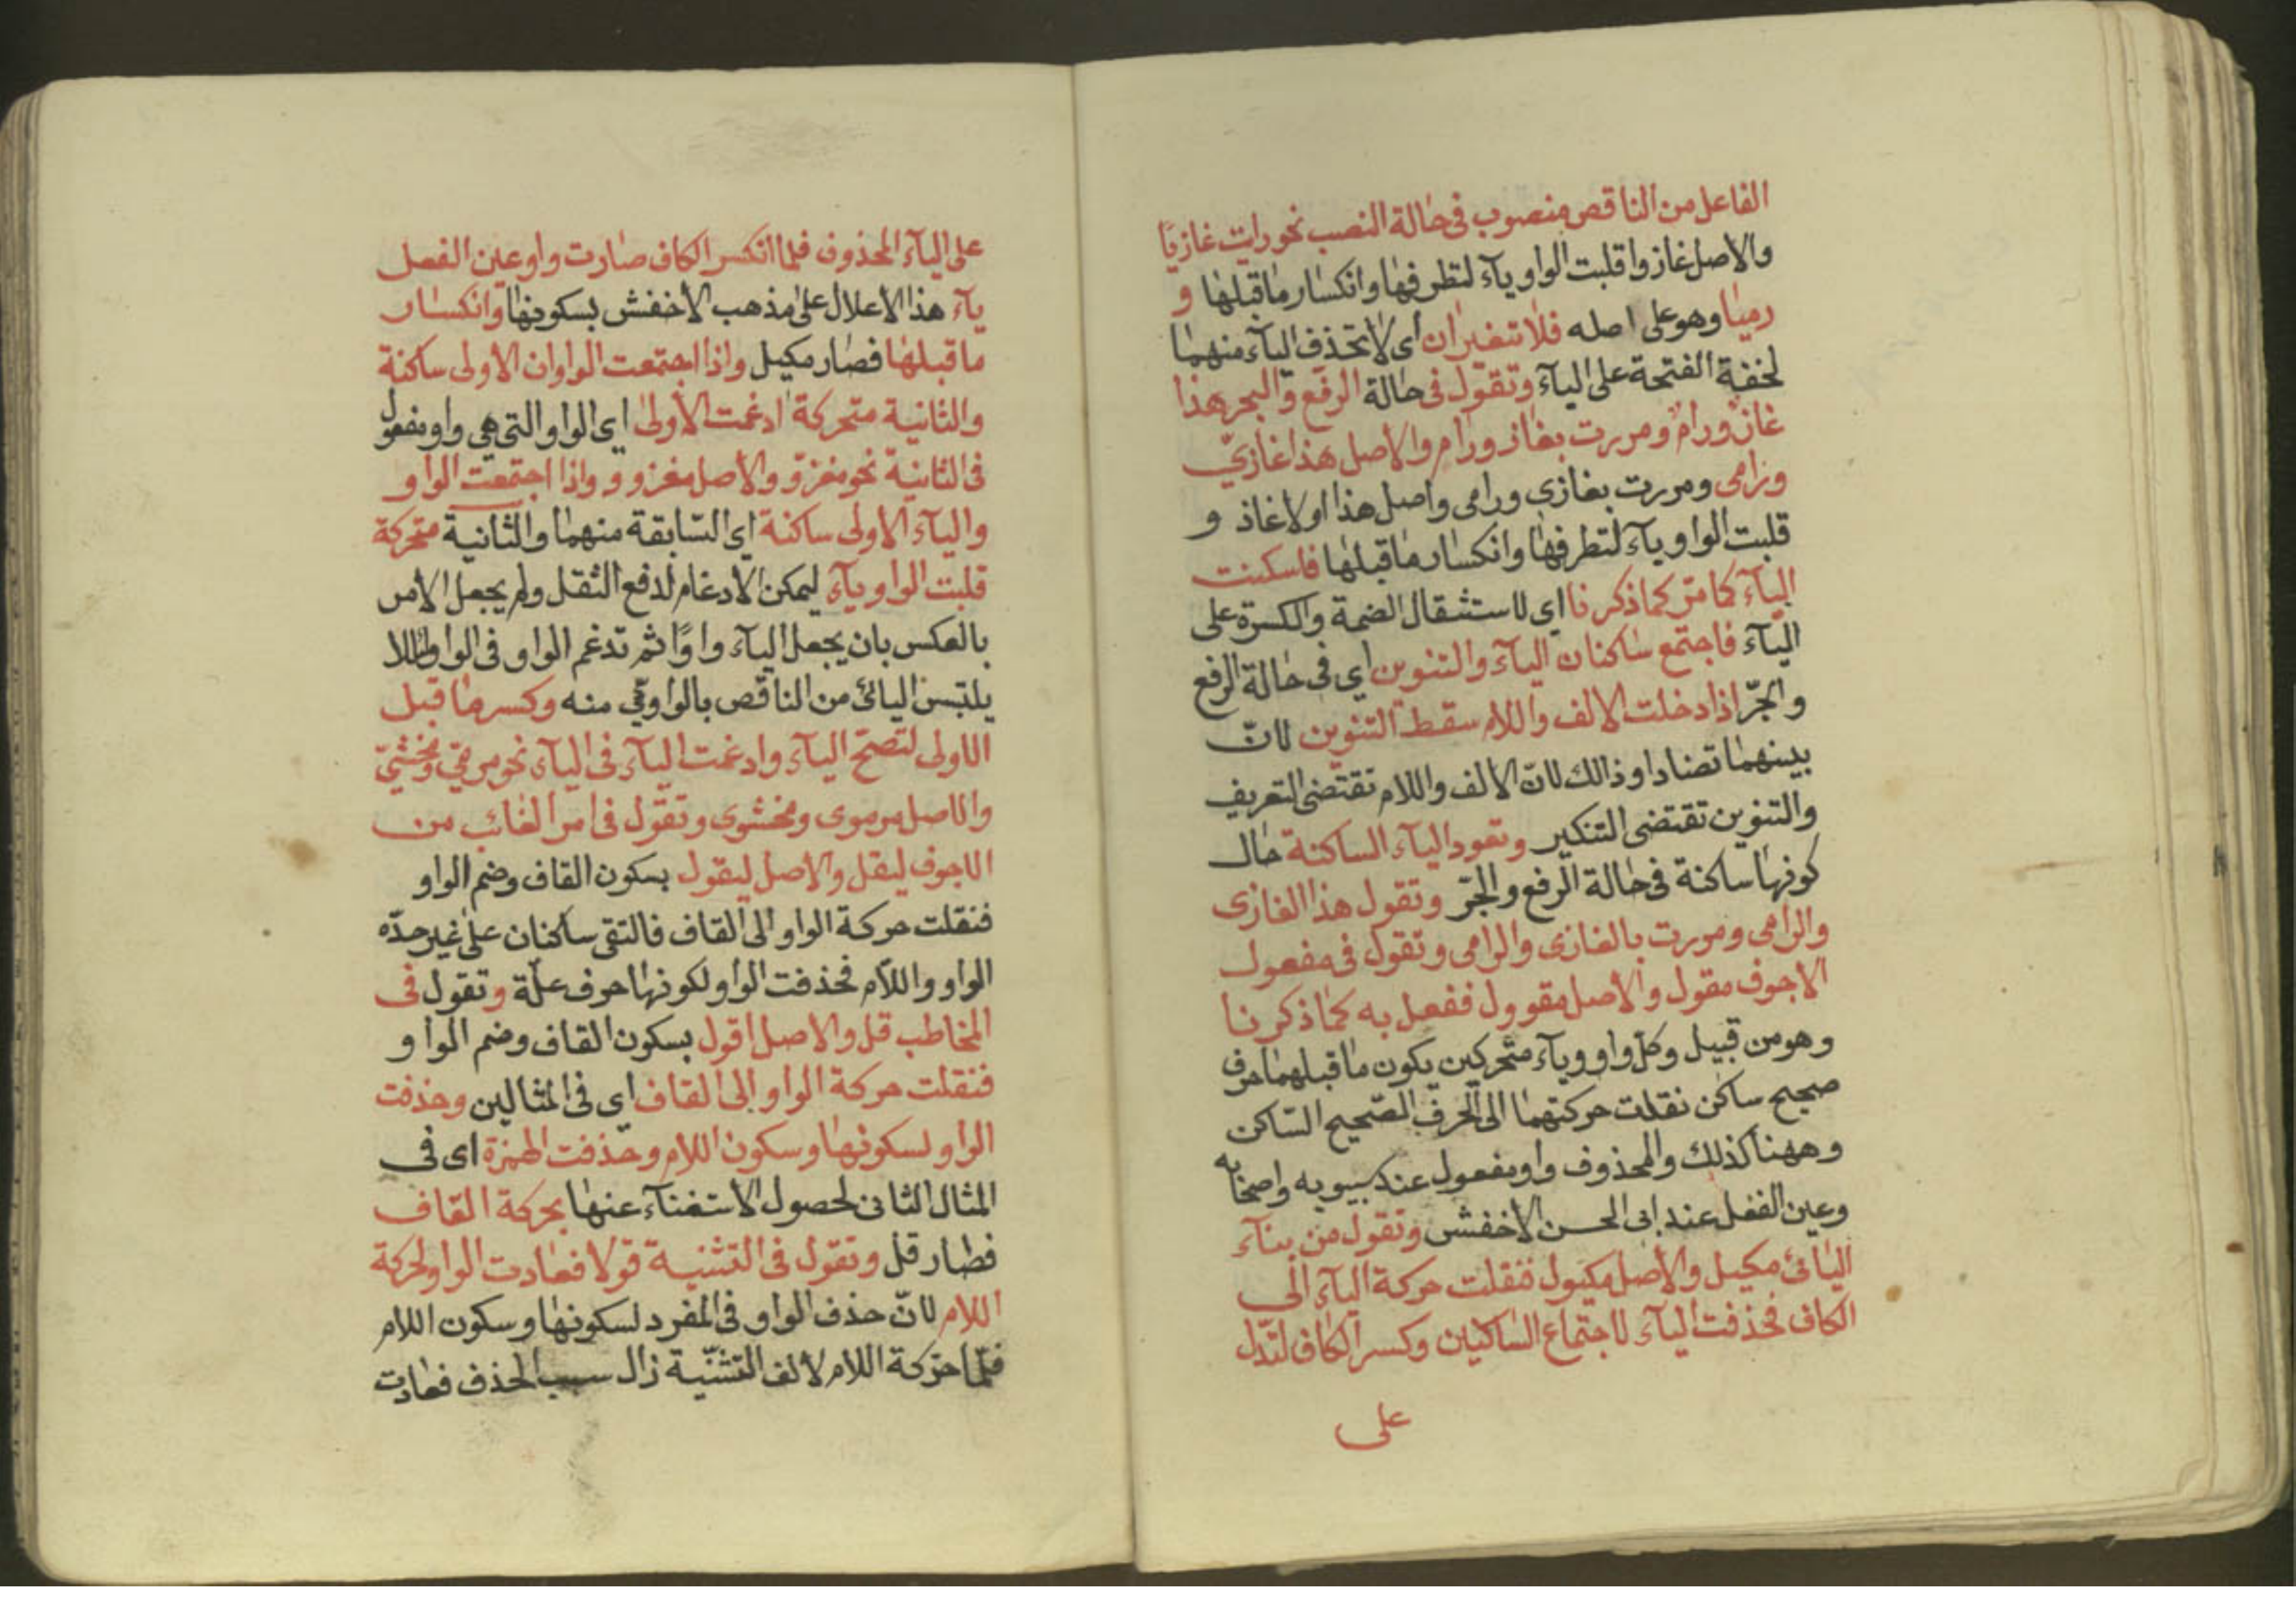 الفاعل من الناقص منصوب في حالة النصب نحو رايت غازيًا
والاصل غازوا قلبت الواو يآء لتطرفها وانكسار ما قبلها و
رميا وهو على اصله فلا تتغيران أى لا تحذف اليآء منهما
لخفة الفتحة على اليآء وتقول فى حالة الرفع والجر هذا
غازٌ ورامٌ ومررت بغاز ورام والاصل هذا غازيٌ
ورامى ومررت بغازى ورامى واصل هذا اولا غاز و
قلبت الواو يآء لتطرفها وانكسار ما قبلها فاسكنت
اليآء كما مرّ كما ذكرنا اي لاستثقال الضمة والكسرة على
اليآء فاجتمع ساكنان اليآء والتنوين اي فى حالة الرفع
والجرّ اذا دخلت الالف واللام سقط التنوين لانّ
بينهما تضادا وذالك لانّ الالف واللام تقتضى التعريف
والتنوين تقتضى التنكير وتعود اليآء الساكنة حال
كونها ساكنة فى حالة الرفع والجرّ وتقول هذا الغازى
والرامى ومررت بالغازى والرامى وتقول فى مفعول
الاجوف مقول والاصل مقوول ففعل به كما ذكرنا
وهو من قبيل وكل واو ويآء متحركين يكون ما قبلهما حرف
صحيح ساكن نقلت حركتهما الى الحرف الصّحيح السّاكن
وههنا كذلك والمحذوف واو مفعول عند سيبويه واصحابه
وعين الفعل عند ابى الحسن الاخفش وتقول من بنآء
اليائى مكيل والاصل مكيول فنقلت حركة اليآء الى
الكاف فحذفت اليآء لاجتماع الساكنين وكسر الكاف لتدل
على
على اليآء المحذوف فلما انكسر الكاف صارت واو عين الفعل
يآء هذا الاعلال على مذهب الأخفش بسكونها وانكسار
ما قبلها فصار مكيل واذا اجتمعت الواوان الاولى ساكنة
والثانية متحركة ادغمت الأولى اى الواو التى هي واو مفعول
فى الثانية نحو مغزوّ والأصل مغزوو واذا اجتمعت الواو
واليآء الاولى ساكنة اى السّابقة منهما والثانية متحركة
قلبت الواو يآء ليمكن الادغام لدفع الثقل ولم يجعل الامر
بالعكس بان يجعل اليآء واوًا ثم تدغم الواو فى الواو لئلا
يلتبس اليائى من الناقص بالواوىّ منه وكسر ما قبل
الاولى لتصحّ اليآء وادغمت اليآء فى اليآء نحو مرمّى ومخشىّ
والاصل مرموى ومخشوى وتقول فى امر الغائب من
الاجوف ليقل والاصل ليقول بسكون القاف وضم الواو
فنقلت حركة الواو الى القاف فالتقى ساكنان على غير حدّه
الواو واللام فحذفت الواو لكونها حرف علّة وتقول فى
المخاطب قل والاصل اقول بسكون القاف وضم الواو
فنقلت حركة الواو الى القاف اى فى المثالين وحذفت
الواو لسكونها وسكون اللام وحذفت الهمزة اى فى
المثال الثانى لحصول الاستغنآء عنها بحركة القاف
فصار قل وتقول فى التثنية قولا فعادت الواو لحركة
اللام لانّ حذف الواو فى المفرد لسكونها وسكون اللام
فلمّا حركة اللام لالف التثنية زال سبب الحذف فعادت